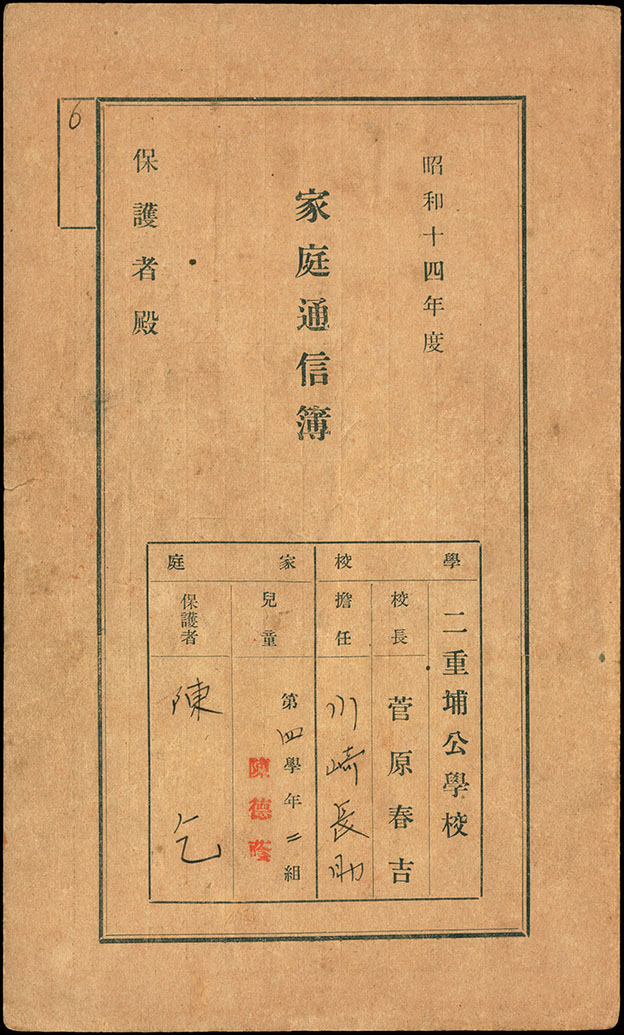 昭和十四年度
家庭通信簿
保護者殿
6
學校
二重埔公學校
校長
菅原春吉
擔任
川崎長助
家庭
兒童
第四學年二組
陳德隆
保護者
陳乞